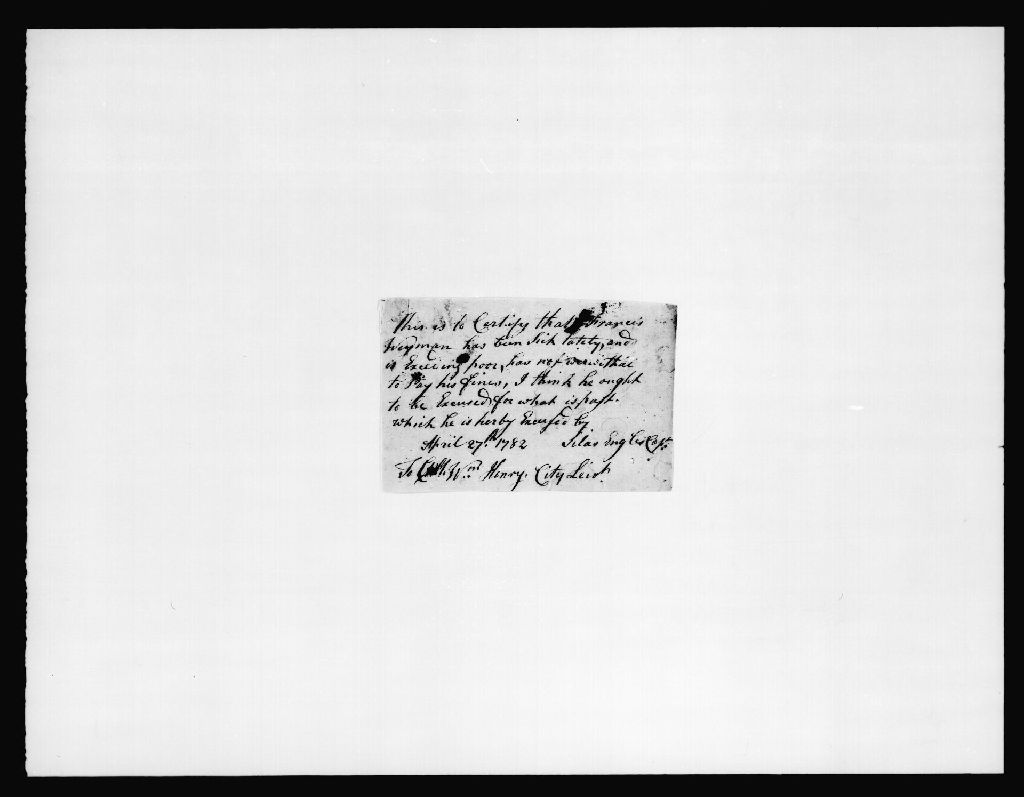 This is to Certify that Francis
Weyman has been Sick lately, and
is Exceeding poor, has not wherewithal
to Pay his fines, I think he ought
to be Excused for what is past.
which he is herby Excused by
April 27th 1782 Silas Engles Capt.
To Coll. Wm Henry. City Liut.